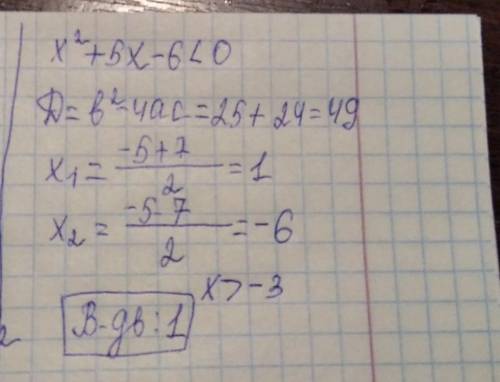 x²+5x-6<0
D=b²-4ac=25+24=49
x₁= (-5+7)/2 =1
x₂= (-5-7)/2 =-6
x>-3
В-дь: 1